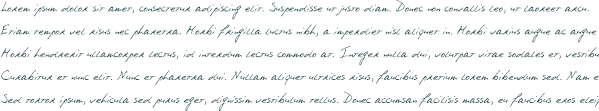 Lorem ipsum dolor sit amet, consectetur adipiscing elit. Suspendisse ut justo diam. Donec non convallis leo, ut laoreet arcu.
Etiam tempor vel risus nec pharetra. Morbi fringilla luctus nibh, a imperdiet nisl aliquet in. Morbi varius augue ac augue
Morbi hendrerit ullamcorper lectus, id interdum lectus commodo at. Integer nulla dui, volutpat vitae sodales et, vestibu
Curabitur et nunc elit. Nunc et pharetra dui. Nullam aliquet ultrices risus, faucibus pretium lorem bibendum sed. Nam e
Sed tortor ipsum, vehicula sed purus eget, dignissim vestibulum tellus. Donec accumsan facilisis massa, eu faucibus eros